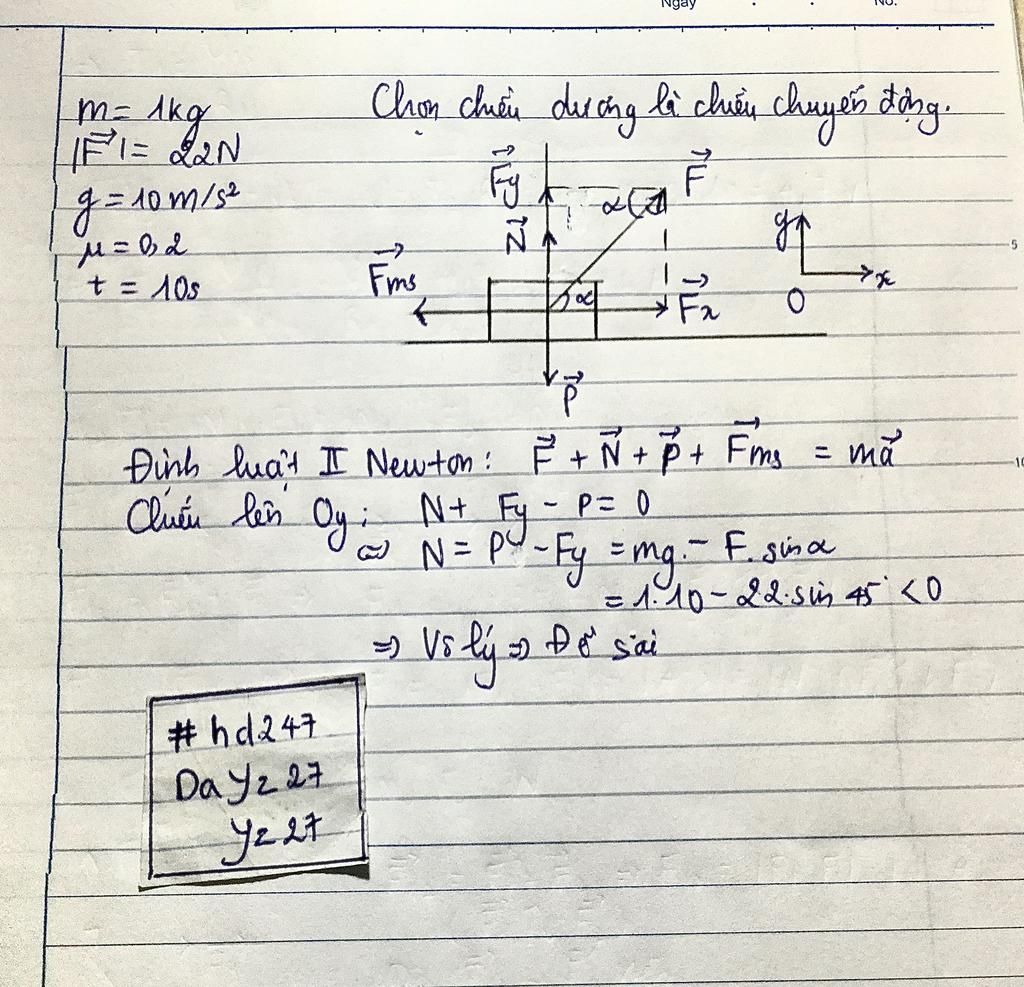 Ngày . . No.
m = 1kg
|F⃗| = 22N
g = 10 m/s²
μ = 0,2
t = 10s
Chọn chiều dương là chiều chuyển động.
F⃗y
F⃗
α
N⃗
F⃗ms
α
F⃗x
P⃗
y
x
O
5
Định luật II Newton: F⃗ + N⃗ + P⃗ + F⃗ms = ma⃗
10
Chiếu lên Oy: N + Fy - P = 0
⇔ N = P - Fy = mg - F.sinα
= 1.10 - 22.sin 45° < 0
⇒ Vô lý ⇒ Đề sai
#hd247
DaYz27
Yz27